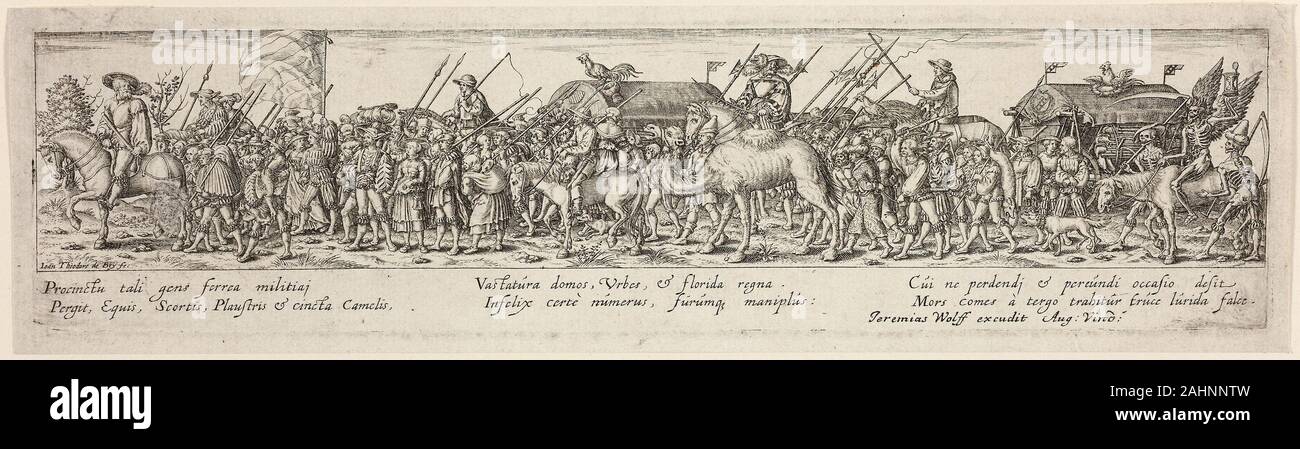 Ioan Theodore de Bry fe.
Procinctu tali gens ferrea militiaj
Pergit, Equis, Scortis, Plaustris & cincta Camelis,
Vastatura domos, Vrbes, & florida regna.
Infelix certè númerus, fúrúmq maniplús:
Cúi ne perdendj & pereúndi occasio desit
Mors comes à tergo trahitúr trúce lúrida falce.
Jeremias Wolff excudit Aug: Vind:
a
alamy
Image ID: 2AHNNTW
www.alamy.com